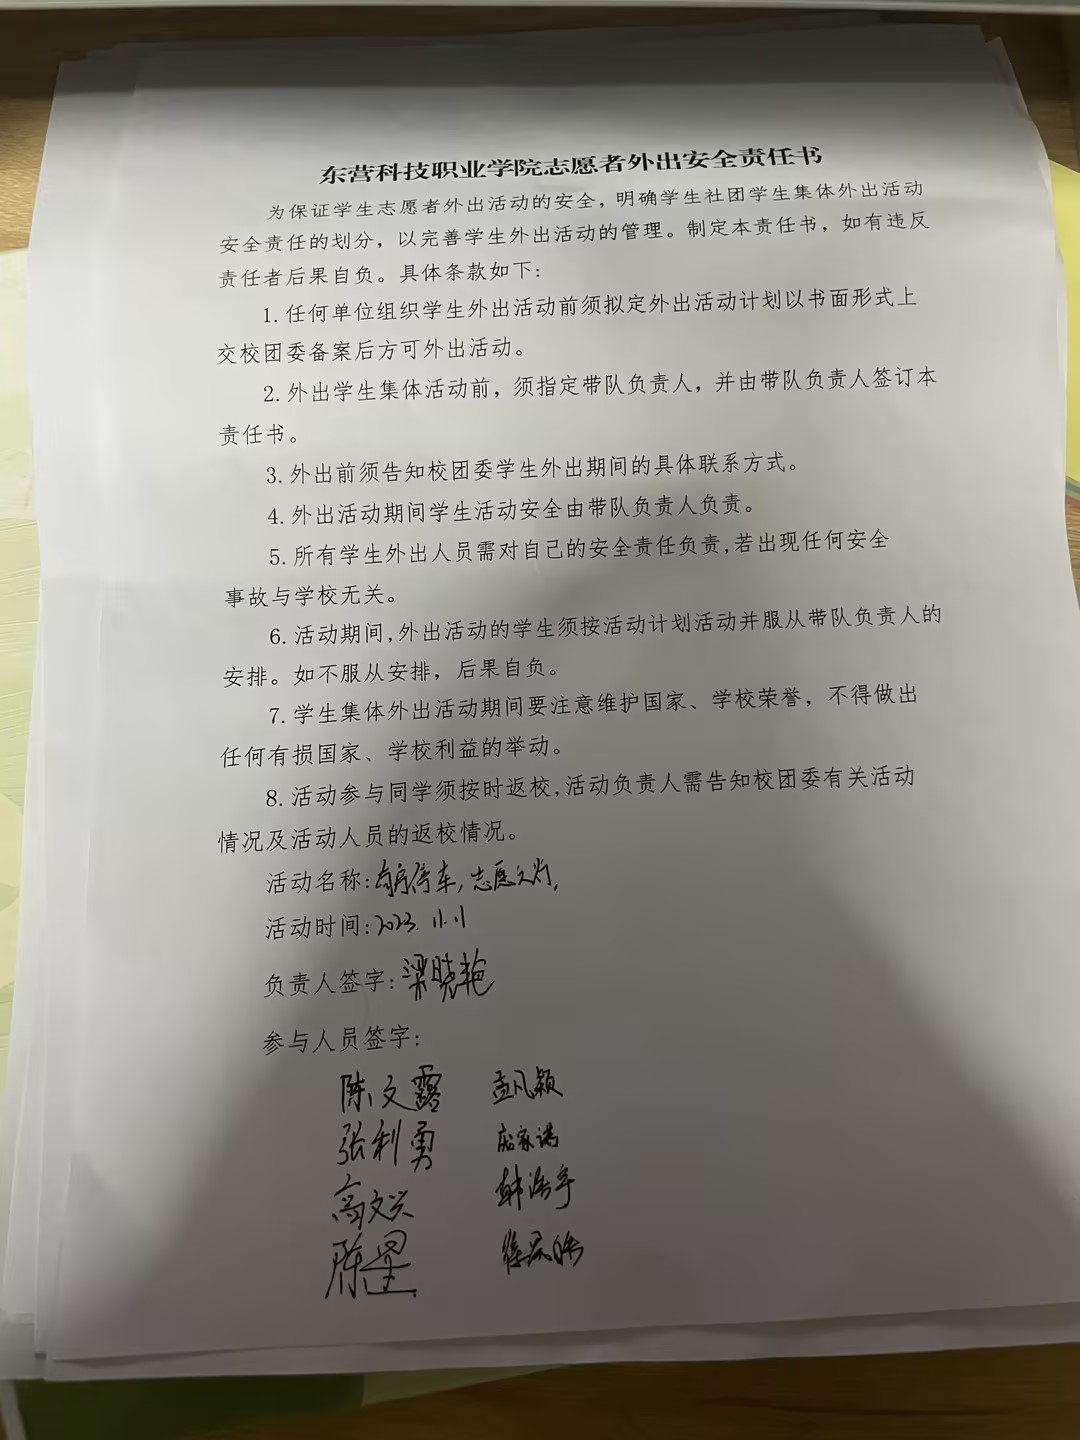 东营科技职业学院志愿者外出安全责任书
为保证学生志愿者外出活动的安全，明确学生社团学生集体外出活动
安全责任的划分，以完善学生外出活动的管理。制定本责任书，如有违反
责任者后果自负。具体条款如下：
1.任何单位组织学生外出活动前须拟定外出活动计划以书面形式上
交校团委备案后方可外出活动。
2.外出学生集体活动前，须指定带队负责人，并由带队负责人签订本
责任书。
3.外出前须告知校团委学生外出期间的具体联系方式。
4.外出活动期间学生活动安全由带队负责人负责。
5.所有学生外出人员需对自己的安全责任负责,若出现任何安全
事故与学校无关。
6.活动期间,外出活动的学生须按活动计划活动并服从带队负责人的
安排。如不服从安排，后果自负。
7.学生集体外出活动期间要注意维护国家、学校荣誉，不得做出
任何有损国家、学校利益的举动。
8.活动参与同学须按时返校,活动负责人需告知校团委有关活动
情况及活动人员的返校情况。
活动名称:有序停车,志愿之灯,
活动时间:2023.11.11
负责人签字:梁晓艳
参与人员签字:
陈文露 孟凡颖
张利勇 庞家诺
高文兴 韩浩宇
陈星